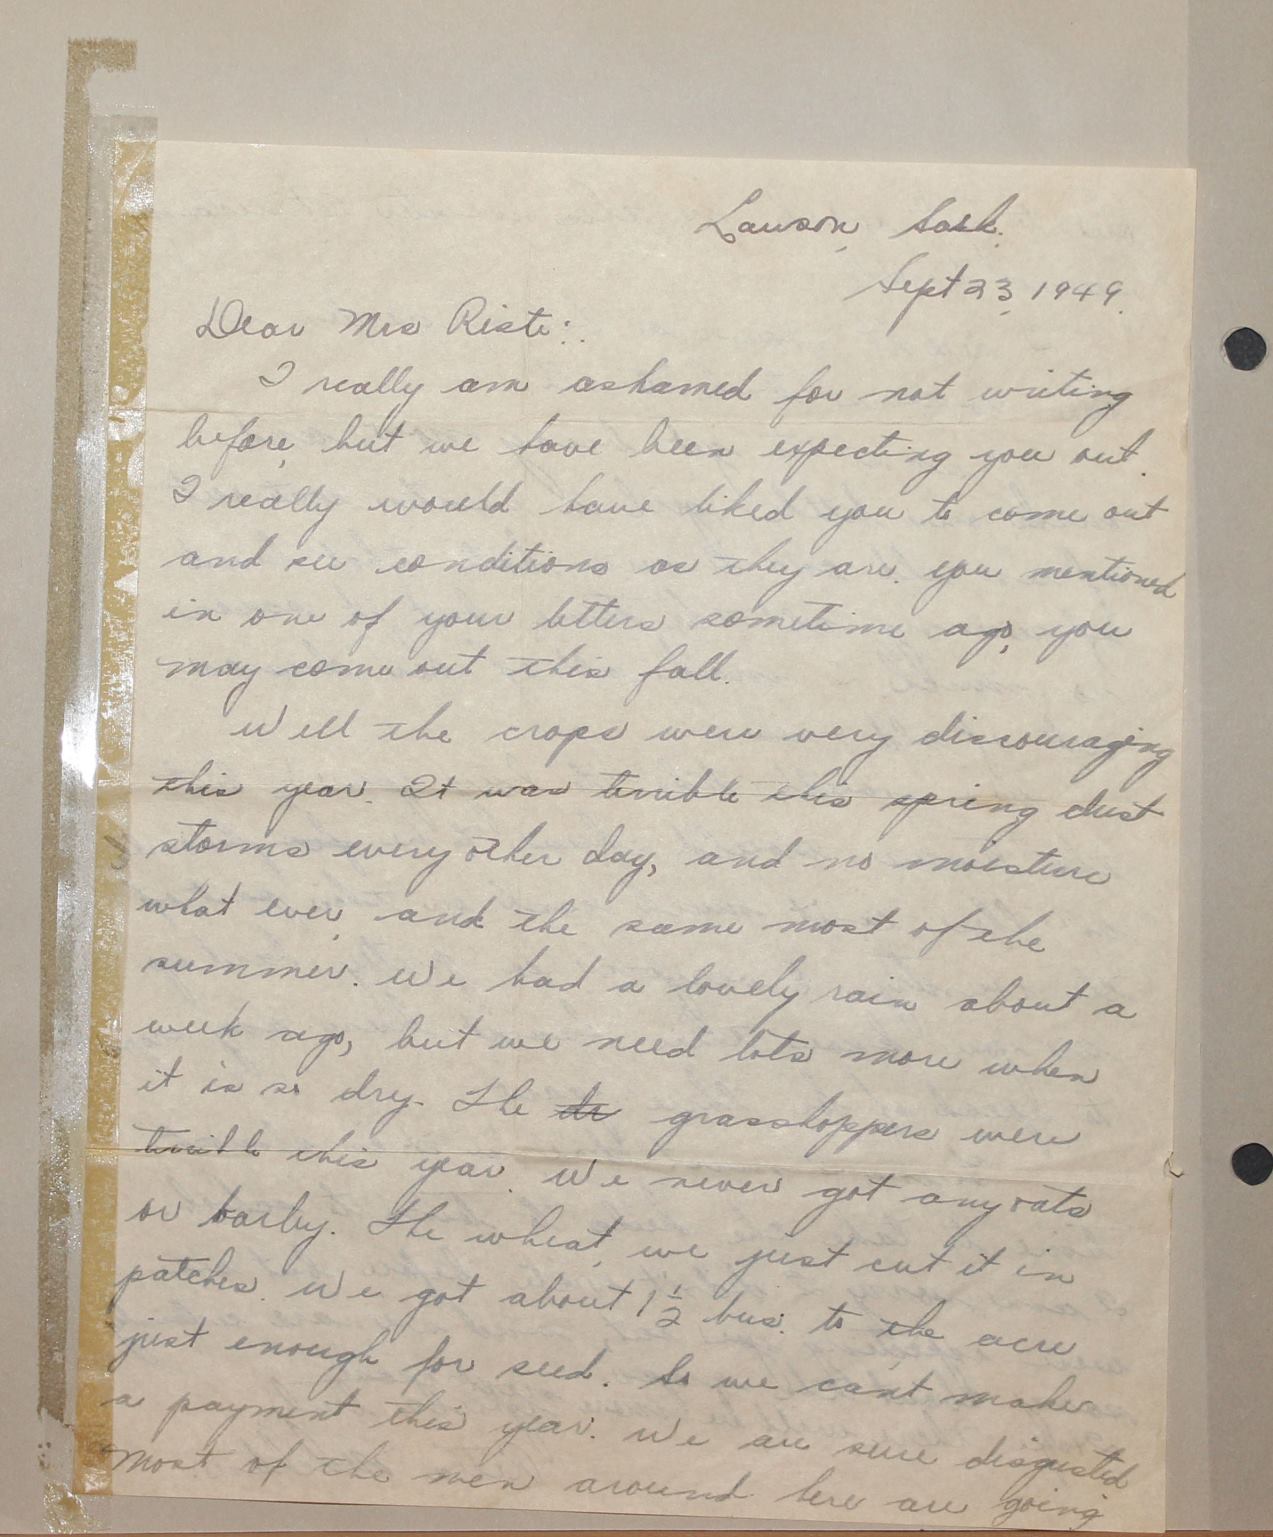 Lawson, Sask.
Sept 23, 1949.
Dear Mrs Riste:.
I really am ashamed for not writing
before, but we have been expecting you out.
I really would have liked you to come out
and see conditions as they are. you mentioned
in one of your letters sometime ago, you
may come out this fall.
Well the crops were very discouraging
this year. It was terrible this spring dust
storms every other day, and no moisture
what ever, and the same most of the
summer. We had a lovely rain about a
week ago, but we need lots more when
it is so dry. The te grasshoppers were
terrible this year. We never got any oats
or barley. The wheat, we just cut it in
patches. We got about 1 1/2 bus. to the acre
just enough for seed. So we cant make
a payment this year. We are sure disgusted
most of the men around here are going